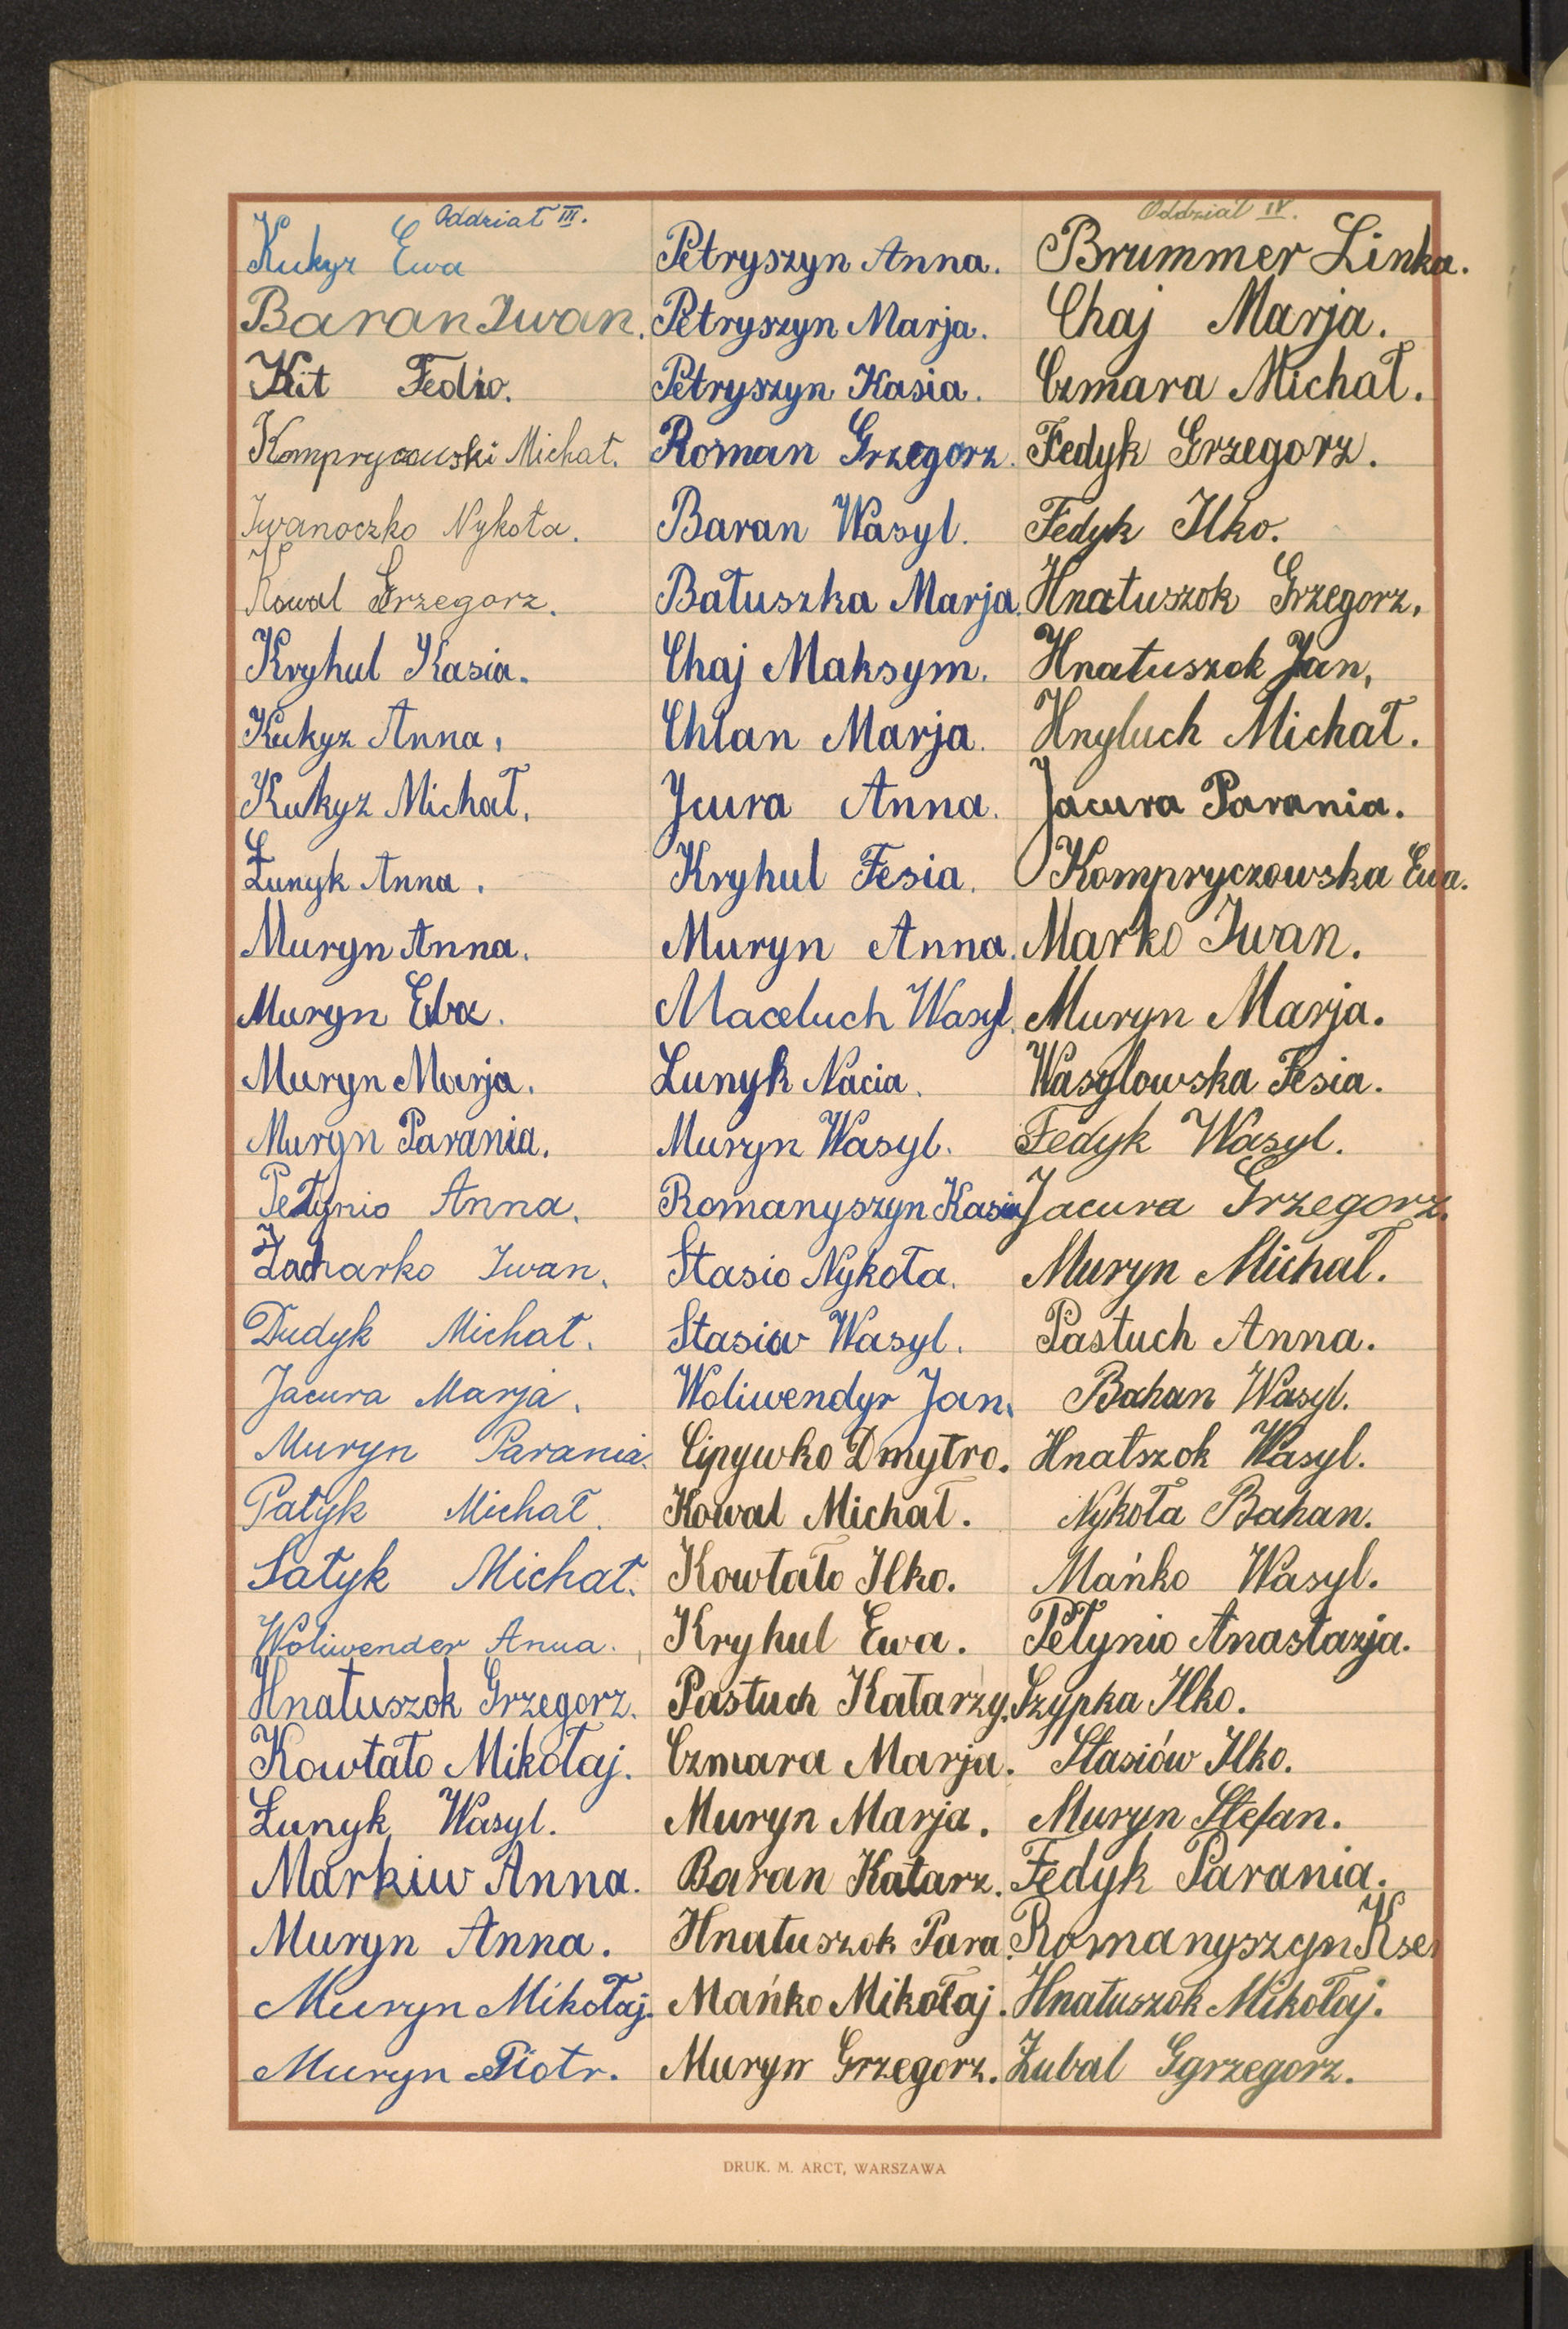 Oddział III.
Kukyz Ewa
Baran Iwan.
Kit Fedio.
Kompryczowski Michał.
Iwanoczko Nykoła.
Kowal Grzegorz.
Kryhul Kasia.
Kukyz Anna.
Kukyz Michał.
Łunyk Anna.
Muryn Anna.
Muryn Ewa.
Muryn Marja.
Muryn Parania.
Petynio Anna.
Zacharko Iwan.
Dudyk Michał.
Jacura Marja.
Muryn Parania.
Patyk Michał.
Satyk Michał.
Woliwender Anna.
Hnatuszok Grzegorz.
Kowtało Mikołaj.
Łunyk Wasyl.
Markiw Anna.
Muryn Anna.
Muryn Mikołaj.
Muryn Piotr.
Petryszyn Anna.
Petryszyn Marja.
Petryszyn Kasia.
Roman Grzegorz.
Baran Wasyl.
Batuszka Marja.
Chaj Maksym.
Chlan Marja.
Jcura Anna.
Kryhul Fesia.
Muryn Anna.
Maceluch Wasyl.
Łunyk Nacia.
Muryn Wasyl.
Romanyszyn Kasia
Stasio Nykoła.
Stasiw Wasyl.
Woliwendyr Jan.
Cipywko Dmytro.
Kowal Michał.
Kowtało Ilko.
Kryhul Ewa.
Pastuch Katarzy.
Czmara Marja.
Muryn Marja.
Baran Katarz.
Hnatuszok Para.
Mańko Mikołaj.
Muryn Grzegorz.
Oddział IV.
Brummer Linka.
Chaj Marja.
Czmara Michał.
Fedyk Grzegorz.
Fedyk Ilko.
Hnatuszok Grzegorz.
Hnatuszok Jan,
Hnyluch Michał.
Jacura Parania.
Kompryczowska Ewa.
Marko Iwan.
Muryn Marja.
Wasylowska Fesia.
Fedyk Wasyl.
Jacura Grzegorz.
Muryn Michał.
Pastuch Anna.
Bahan Wasyl.
Hnatszok Wasyl.
Nykoła Bahan.
Mańko Wasyl.
Petynio Anastazja.
Szypka Ilko.
Stasiów Ilko.
Muryn Stefan.
Fedyk Parania.
Romanyszyn Kse
Hnatuszok Mikołaj.
Zubal Ggrzegorz.
DRUK. M. ARCT, WARSZAWA